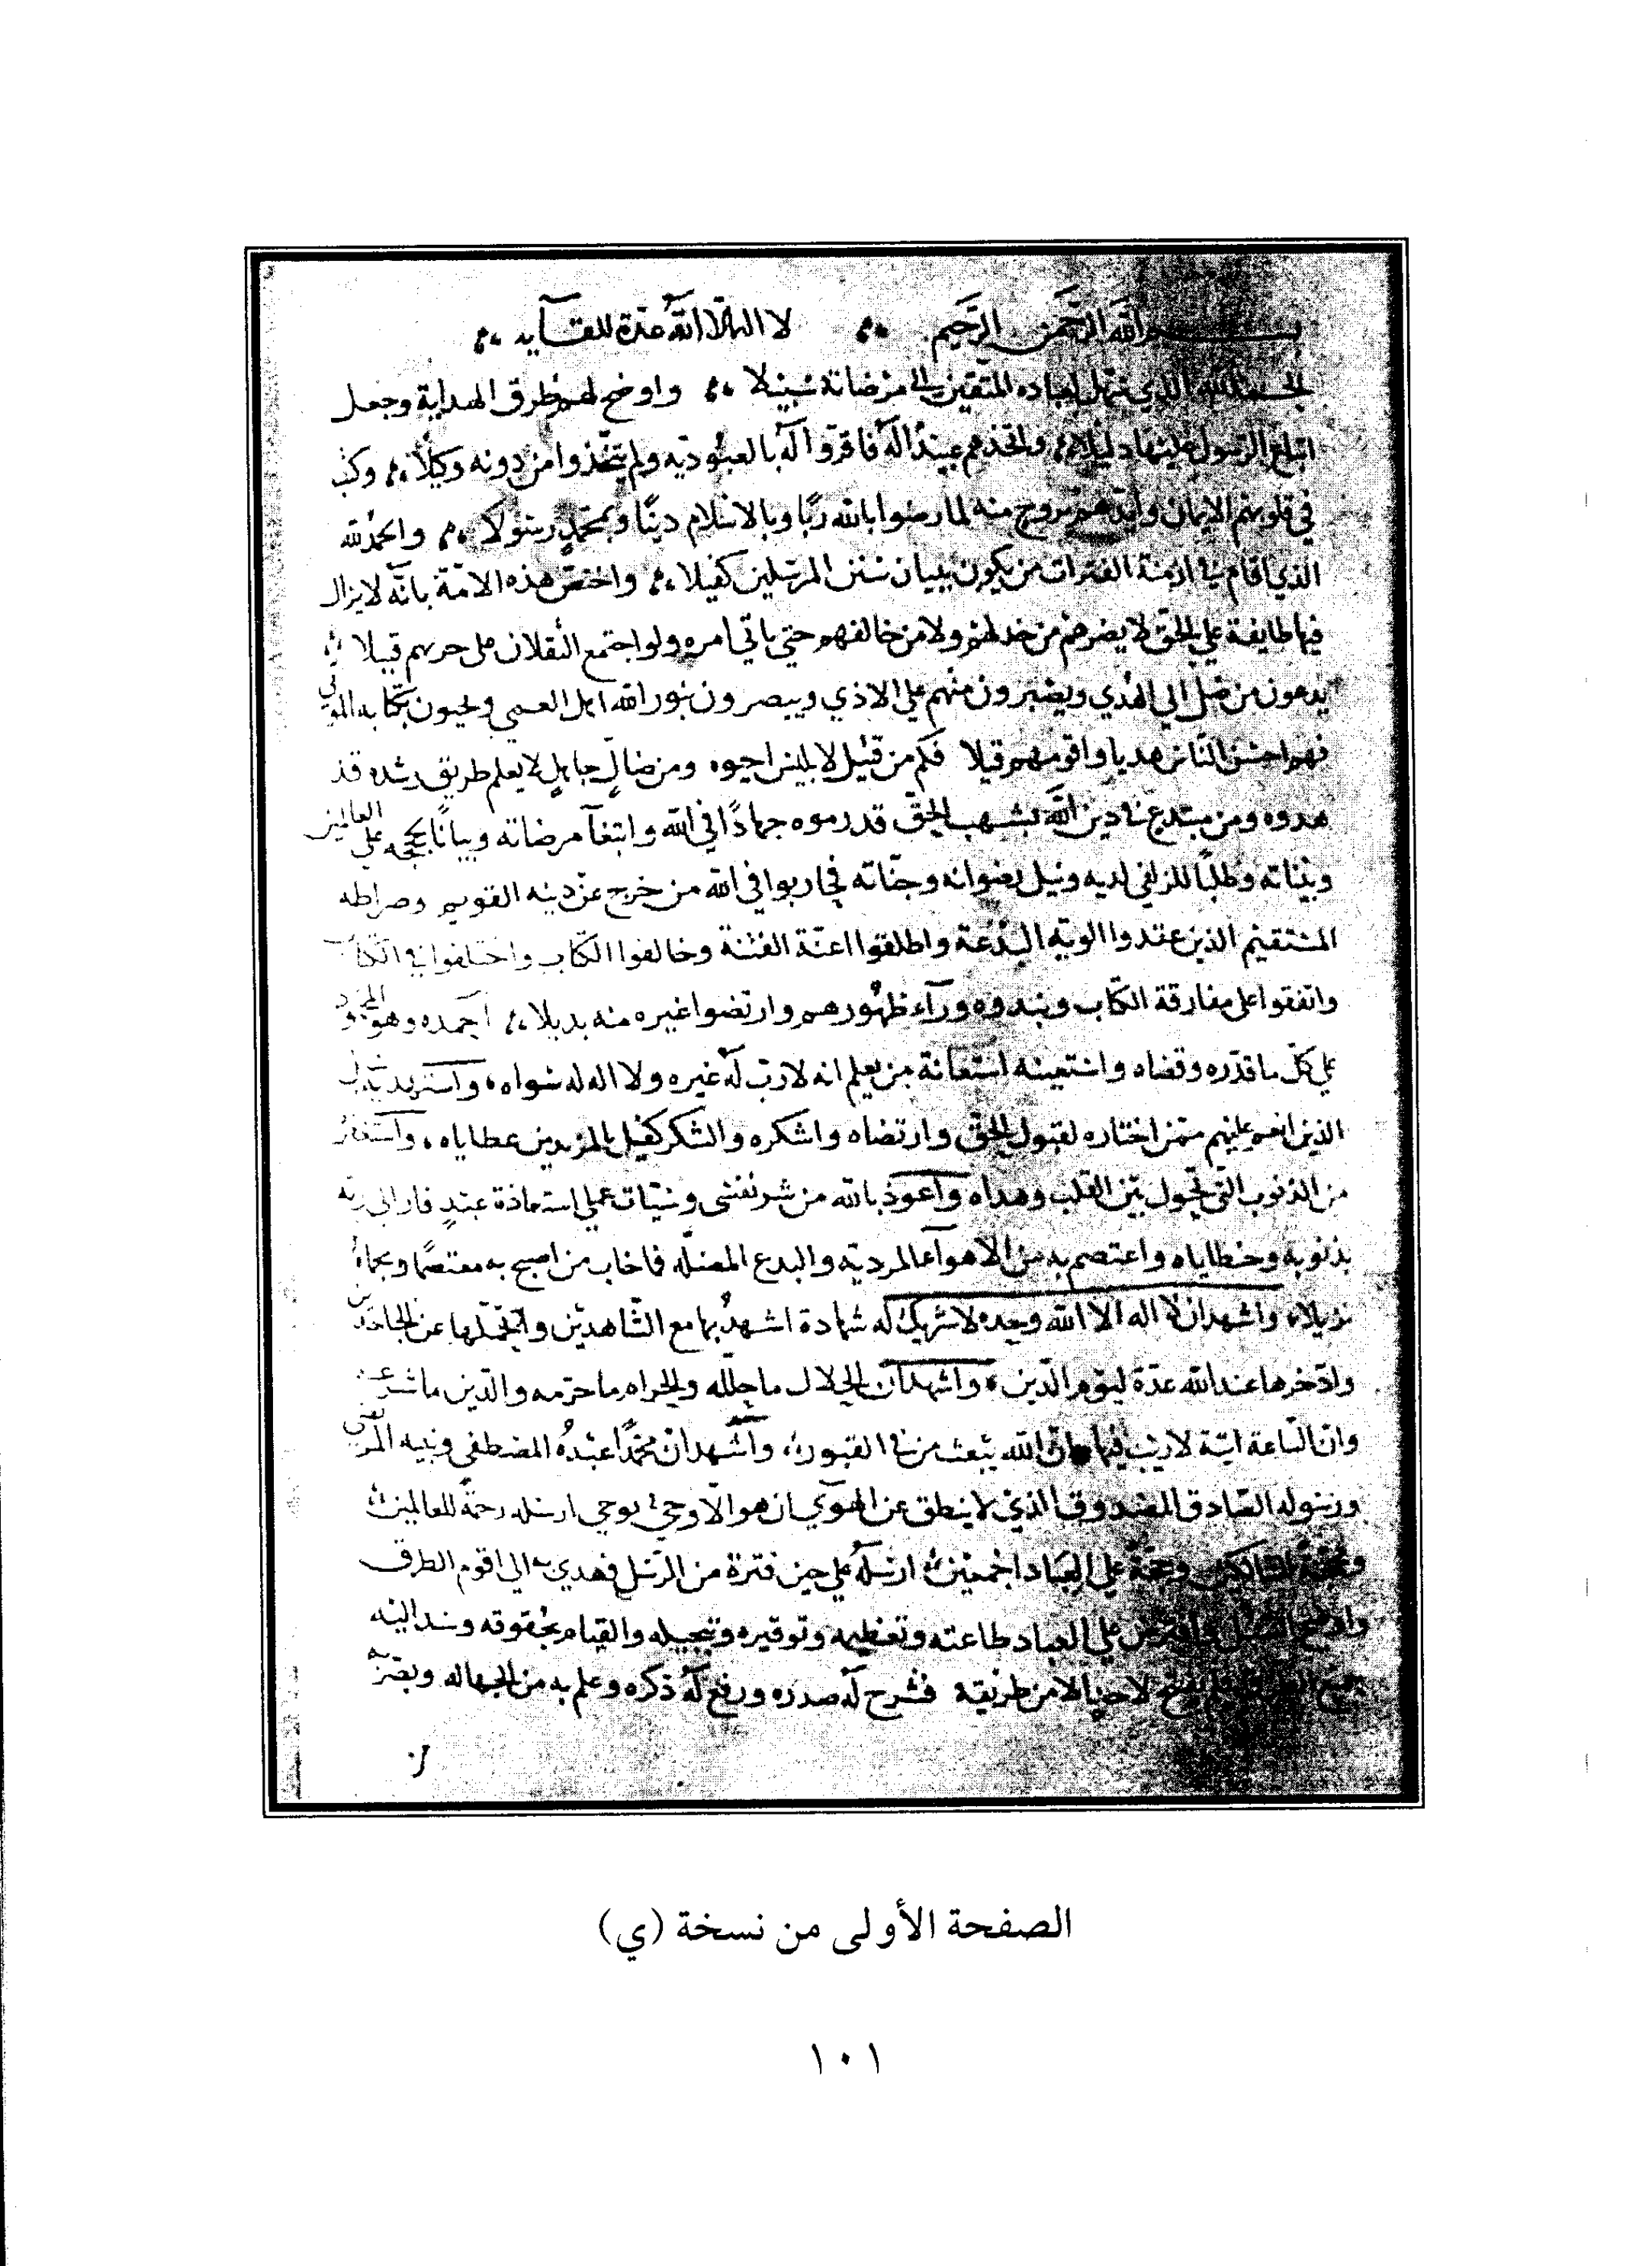 بسم الله الرحمن الرحيم لا اله الا الله عدة للقآيه
الحمد لله الذي سهل لعباده المتقين الى مرضاته سبيلا واوضح لهم طرق الهداية وجعل
اتباع الرسول عليها دليلا واتخذهم عبيدا له فاقروا له بالعبودية ولم يتخذوا من دونه وكيلا وكتب
في قلوبهم الايمان وايدهم بروح منه لما رضوا بالله ربا وبالاسلام دينا وبمحمد رسولا والحمد لله
الذي اقام في ازمنة الفترات من يكون ببيان سنن المرسلين كفيلا واختص هذه الامة بانه لا يزال
فيها طايفة علي الحق لا يضرهم من خذلهم ولا من خالفهم حتي ياتي امره ولو اجتمع الثقلان على حربهم قبيلا
يدعون من ضل الي الهدي ويصبرون منهم علي الاذي ويبصرون بنور الله اهل العمي ويحيون بكتابه الموتي
فهم احسن الناس هديا واقومهم قيلا فكم من قتيل لابليس احيوه ومن ضال جاهل لا يعلم طريق رشده قد
هدوه ومن مبتدع في دين الله بشهب الحق قد رموه جهادا في الله وابتغآ مرضاته وبيانا لحججه علي العالمين
وبيناته وطلبا للزلفي لديه ونيل رضوانه وجناته فحاربوا في الله من خرج عن دينه القويم وصراطه
المستقيم الذين عقدوا الوية البدعة واطلقوا اعنة الفتنة وخالفوا الكتاب واختلفوا في الكتاب
واتفقوا على مفارقة الكتاب ونبذوه ورآء ظهورهم وارتضوا غيره منه بديلا احمده وهو المحمود
علي كل ما قدره وقضاه واستعينه استعانة من يعلم انه لا رب له غيره ولا اله له سواه واستهديه سبيل
الذين انعم عليهم ممن اختاره لقبول الحق وارتضاه واشكره والشكر كفيل بالمزيد من عطاياه واستغفره
من الذنوب التي تحول بين القلب وهداه واعوذ بالله من شر نفسي وسيات عملي استعاذة عبد فار الي ربه
بذنوبه وخطاياه واعتصم به من الاهوآء المردية والبدع المضله فما خاب من اصبح به معتصما وبحماه
نزيلا واشهد ان لا اله الا الله وحده لا شريك له شهادة اشهد بها مع الشاهدين واتحملها عن الجاحدين
وادخرها عند الله عدة ليوم الدين واشهد ان الحلال ما حلله والحرام ما حرمه والدين ما شرعه
وان الساعة اتية لا ريب فيها وان الله يبعث من في القبور واشهد ان محمدا عبده المصطفي ونبيه المرتضي
ورسوله الصادق المصدوق الذي لا ينطق عن الهوي ان هو الا وحي يوحي ارسله رحمة للعالمين
ومحجة للسالكين وحجة علي العباد اجمعين ارسله علي حين فترة من الرسل فهدي به الي اقوم الطرق
واوضح السبل وافترض علي العباد طاعته وتعظيمه وتوقيره وتبجيله والقيام بحقوقه وسد اليه
جميع الطرق فلم يفتح لاحد الا من طريقه فشرح له صدره ورفع له ذكره وعلم به من الجهاله وبصر به
الصفحة الأولى من نسخة (ي)
١٠١